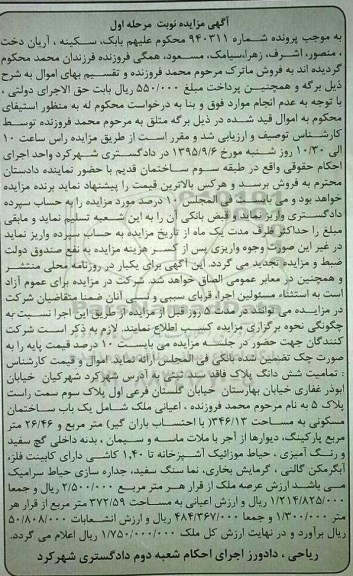 آگهی مزایده نوبت مرحله اول
به موجب پرونده شماره ۹۴۰۳۱۱ محکوم علیهم بابک، سکینه ، آریان دخت
، منصور، اشرف، زهرا،سیامک، مسعود، همگی فروزنده فرزندان محمد محکوم
گردیده اند به فروش ماترک مرحوم محمد فروزنده و تقسیم بهای اموال به شرح
ذیل برگه و همچنین پرداخت مبلغ ۵۵۰/۰۰۰ ریال بابت حق الاجرای دولتی ،
با توجه به عدم انجام موارد فوق و بنا به درخواست محکوم له به منظور استیفای
محکوم به اموال قید شده در ذیل برگه متلق به مرحوم محمد فروزنده توسط
کارشناس توصیف و ارزیابی شد و مقرر است از طریق مزایده راس ساعت ۱۰
الی ۱۰/۳۰ روز شنبه مورخ ۱۳۹۵/۹/۶ در دادگستری شهرکرد واحد اجرای
احکام حقوقی واقع در طبقه سوم ساختمان قدیم با حضور نماینده دادستان
محترم به فروش برسد و هرکس بالاترین قیمت را پیشنهاد نماید برنده مزایده
خواهد بود و می بایست فی المجلس ۱۰ درصد مورد مزایده را به حساب سپرده
دادگستری واریز نماید و قبض بانکی آن را به این شعبه تسلیم نماید و مابقی
مبلغ را حداکثر ظرف مدت یک ماه از تاریخ مزایده به حساب سپرده واریز نماید
در غیر این صورت وجوه واریزی پس از کسر هزینه مزایده به نفع صندوق دولت
ضبط و مزایده تجدید می گردد. این آگهی برای یکبار در روزنامه محلی منتشر
و همچنین در معابر عمومی الصاق خواهد شد. شرکت در مزایده برای عموم آزاد
است به استثناء مسئولین اجرا، اقربای سببی و نسبی آنان ضمنا متقاضیان شرکت
در مزایده می توانند در مدت ۵ روز قبل از مزایده از طریق این اجرا نسبت به
چگونگی نحوه برگزاری مزایده کسب اطلاع نمایند. لازم به ذکر است شرکت
کنندگان جهت حضور در جلسه مزایده می بایست ۱۰ درصد قیمت پایه را به
صورت چک تضمین شده بانکی فی المجلس ارائه نماید. اموال و قیمت کارشناس
: تمامیت شش دانگ پلاک فاقد سند ثبتی به آدرس شهرکرد شهرکیان خیابان
ابوذر غفاری خیابان بهارستان خیابان گلستان فرعی اول پلاک سوم سمت راست
پلاک ۵ به نام مرحوم محمد فروزنده ، اعیانی ملک شامل یک باب ساختمان
مسکونی به مساحت ۳۴۶/۱۳ (با احتساب باران گیر) متر مربع و ۲۶/۴۶ متر
مربع پارکینگ، دیوارها از آجر با ملات ماسه و سیمان ، بدنه داخلی گچ سفید
و رنگ آمیزی . حیاط موزائیک آشپزخانه تا ۱,۴۰ کاشی دارای کابینت فلز،
آبگرمکن گازی ، گرمایش بخاری، نما سنگ سفید، جداره سازی حیاط سرامیک
می باشد ارزش عرصه ملک از قرار هر متر مربع ۲/۵۰۰/۰۰۰ ریال و جمعا
۱/۲۱۴/۸۲۵/۰۰۰ ریال و ارزش اعیانی به مساحت ۳۷۲/۵۹ متر مربع از قرار هر
متر ۱/۳۰۰/۰۰۰ و جمعا ۴۸۴/۳۶۷/۰۰۰ ریال و ارزش انشعابات ۵۰/۸۰۸/۰۰۰
ریال برآورد و در نهایت ارزش کل ملک ۱/۷۵۰/۰۰۰/۰۰۰ ریال اعلام می گردد.
ریاحی ، دادورز اجرای احکام شعبه دوم دادگستری شهرکرد